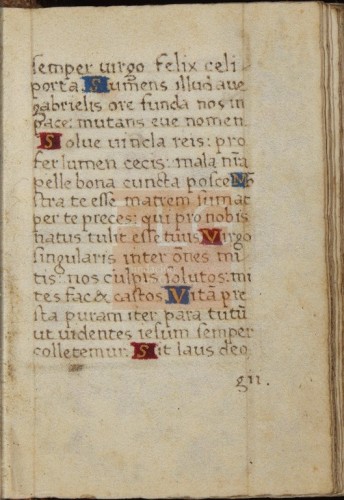 semper virgo felix celi
porta. Sumens illud ave
gabrielis ore funda nos in
pace: mutans eve nomen
Solve vincla reis: pro
fer lumen cecis: mala nr̃a
pelle bona cuncta posce Mo
stra te esse matrem sumat
per te preces: qui pro nobis
natus tulit esse tuus Virgo
singularis inter oñes mi
tis: nos culpis solutos: mi
tes fac & castos Vitã pre
sta puram iter para tutũ
ut videntes iesum semper
colletemur. Sit laus deo
gii.